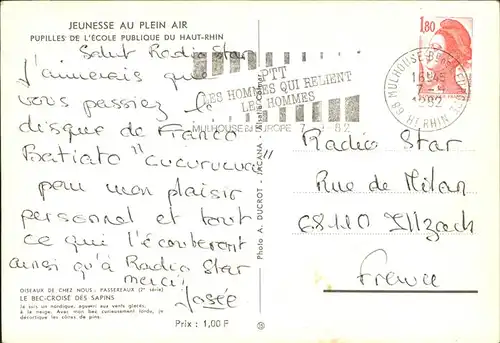 JEUNESSE AU PLEIN AIR
PUPILLES DE L'ÉCOLE PUBLIQUE DU HAUT-RHIN
Salut Radio Star
J'aimerais que
vous passiez le
disque de Franco
Battiato "Cucurucucu"
pour mon plaisir
personnel et tout
ce qui l'écouteront
ainsi qu'à Radio Star
merci,
Josée
OISEAUX DE CHEZ NOUS : PASSEREAUX (7e série)
LE BEC-CROISÉ DES SAPINS
Je suis un nordique, aguerri aux vents glacés,
à la neige. Avec mon bec curieusement tordu, je
décortique les cônes de pins.
Prix : 1,00 F
Photo A. DUCROT - JACANA -
PTT
LES HOMMES QUI RELIENT
LES HOMMES
MULHOUSE EUROPE 7 9 82
1,80
68 MULHOUSE
16H45
7-9
1982
HT RHIN
Radio Star
Rue de Milan
68110 Illzach
France